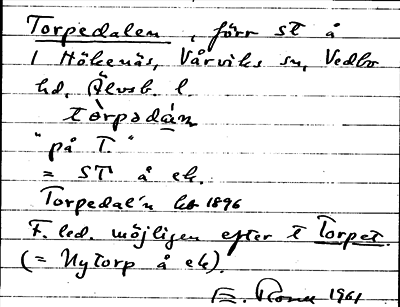 Torpedalen, förr ST å
1 Hökenäs, Vårviks sn, Vedbo
hd. Älvsb. l.
tòrpədán
"på T."
= ST å ek.
Torpedal'n hb 1896
F. led. möjligen efter t Torpet.
(= Nytorp å ek).
1961